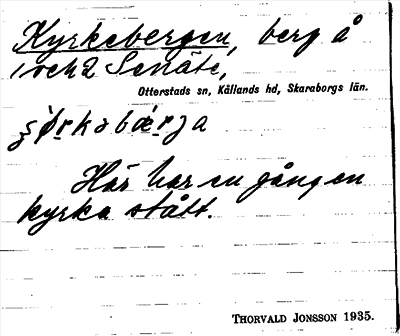 Kyrkebergen, berg å
1 och 2 Senäte,
Otterstads sn, Kållands hd, Skaraborgs län.
Här har en gång en
kyrka stått.
THORVALD JONSSON 1935.